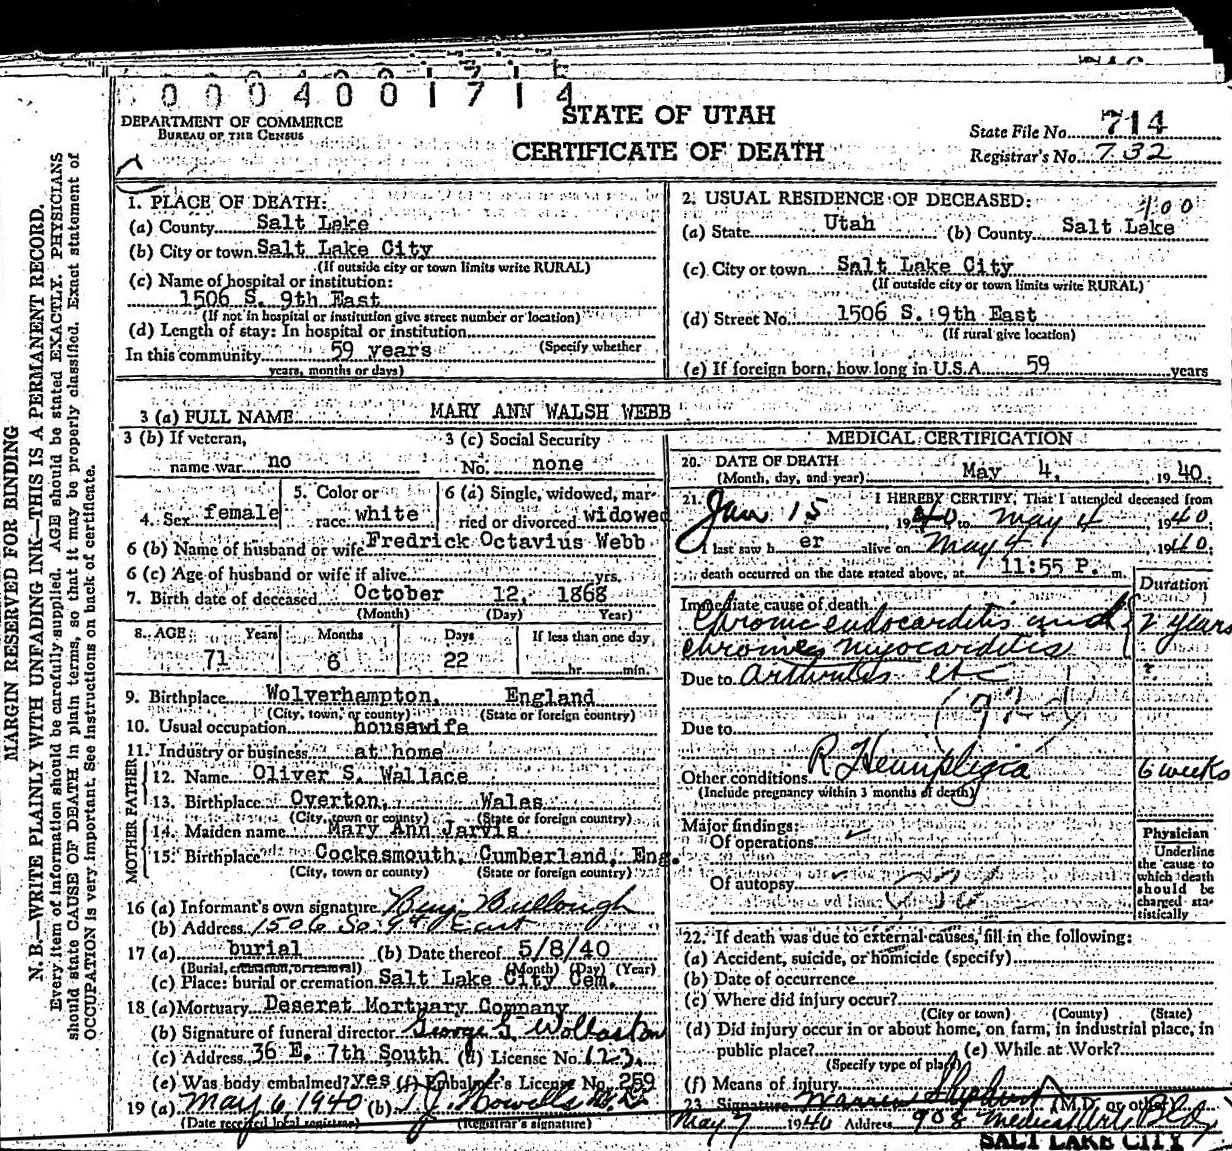 0 0 0 4 0 0 1 7 1 4
DEPARTMENT OF COMMERCE
BUREAU OF THE CENSUS
STATE OF UTAH
CERTIFICATE OF DEATH
State File No. 714
Registrar's No. 732
MARGIN RESERVED FOR BINDING
N. B.—WRITE PLAINLY WITH UNFADING INK—THIS IS A PERMANENT RECORD.
Every item of information should be carefully supplied. AGE should be stated EXACTLY. PHYSICIANS
should state CAUSE OF DEATH in plain terms, so that it may be properly classified. Exact statement of
OCCUPATION is very important. See instructions on back of certificate.
1. PLACE OF DEATH:
(a) County Salt Lake
(b) City or town Salt Lake City
(If outside city or town limits write RURAL)
(c) Name of hospital or institution:
1506 S. 9th East
(If not in hospital or institution give street number or location)
(d) Length of stay: In hospital or institution
(Specify whether
In this community 59 years
years, months or days)
2. USUAL RESIDENCE OF DECEASED: 400
(a) State Utah (b) County Salt Lake
(c) City or town Salt Lake City
(If outside city or town limits write RURAL)
(d) Street No. 1506 S. 9th East
(If rural give location)
(e) If foreign born, how long in U.S.A. 59 years
3 (a) FULL NAME MARY ANN WALSH WEBB
3 (b) If veteran, name war no
3 (c) Social Security No. none
4. Sex female
5. Color or race white
6 (a) Single, widowed, married or divorced widowed
6 (b) Name of husband or wife Fredrick Octavius Webb
6 (c) Age of husband or wife if alive yrs.
7. Birth date of deceased October 12, 1868
(Month) (Day) Year)
8. AGE Years Months Days If less than one day
71 6 22 hr. min.
9. Birthplace Wolverhampton, England
(City, town, or county) (State or foreign country)
10. Usual occupation housewife
11. Industry or business at home
FATHER
12. Name Oliver S. Wallace
13. Birthplace Overton, Wales
(City, town or county) (State or foreign country)
MOTHER
14. Maiden name Mary Ann Jarvis
15. Birthplace Cockesmouth, Cumberland, Eng.
(City, town or county) (State or foreign country)
16 (a) Informant's own signature Benj. Bullough
(b) Address 1506 So 9th East
17 (a) burial (b) Date thereof 5/8/40
(Burial, cremation, or removal) (Month) (Day) (Year)
(c) Place: burial or cremation Salt Lake City Cem.
18 (a) Mortuary Deseret Mortuary Company
(b) Signature of funeral director George S. Wollaston
(c) Address 36 E. 7th South (d) License No. 123
(e) Was body embalmed? yes (f) Embalmer's License No. 259
19 (a) May 6, 1940 (b) T J Howells
(Date received local registrar) (Registrar's signature)
MEDICAL CERTIFICATION
20. DATE OF DEATH
(Month, day, and year) May 4, 1940.
21. I HEREBY CERTIFY, That I attended deceased from
Jan 15, 1940 to May 4 1940
I last saw h er alive on May 4 1940
death occurred on the date stated above, at 11:55 P. m.
Duration
Immediate cause of death
Chronic endocarditis and 2 years
chronic myocarditis
Due to Arthritis etc ?
Due to
Other conditions R Hemiplegia 6 weeks
(Include pregnancy within 3 months of death)
Major findings:
Of operations
Of autopsy
Physician
Underline
the cause to
which death
should be
charged sta-
tistically
22. If death was due to external causes, fill in the following:
(a) Accident, suicide, or homicide (specify)
(b) Date of occurrence
(c) Where did injury occur?
(City or town) (County) (State)
(d) Did injury occur in or about home, on farm, in industrial place, in
public place? (e) While at Work?
(Specify type of place)
(f) Means of injury
23. Signature Warren Shepherd (M.D. or other)
May 7 1940 Address 908 Medical Arts Bldg
SALT LAKE CITY